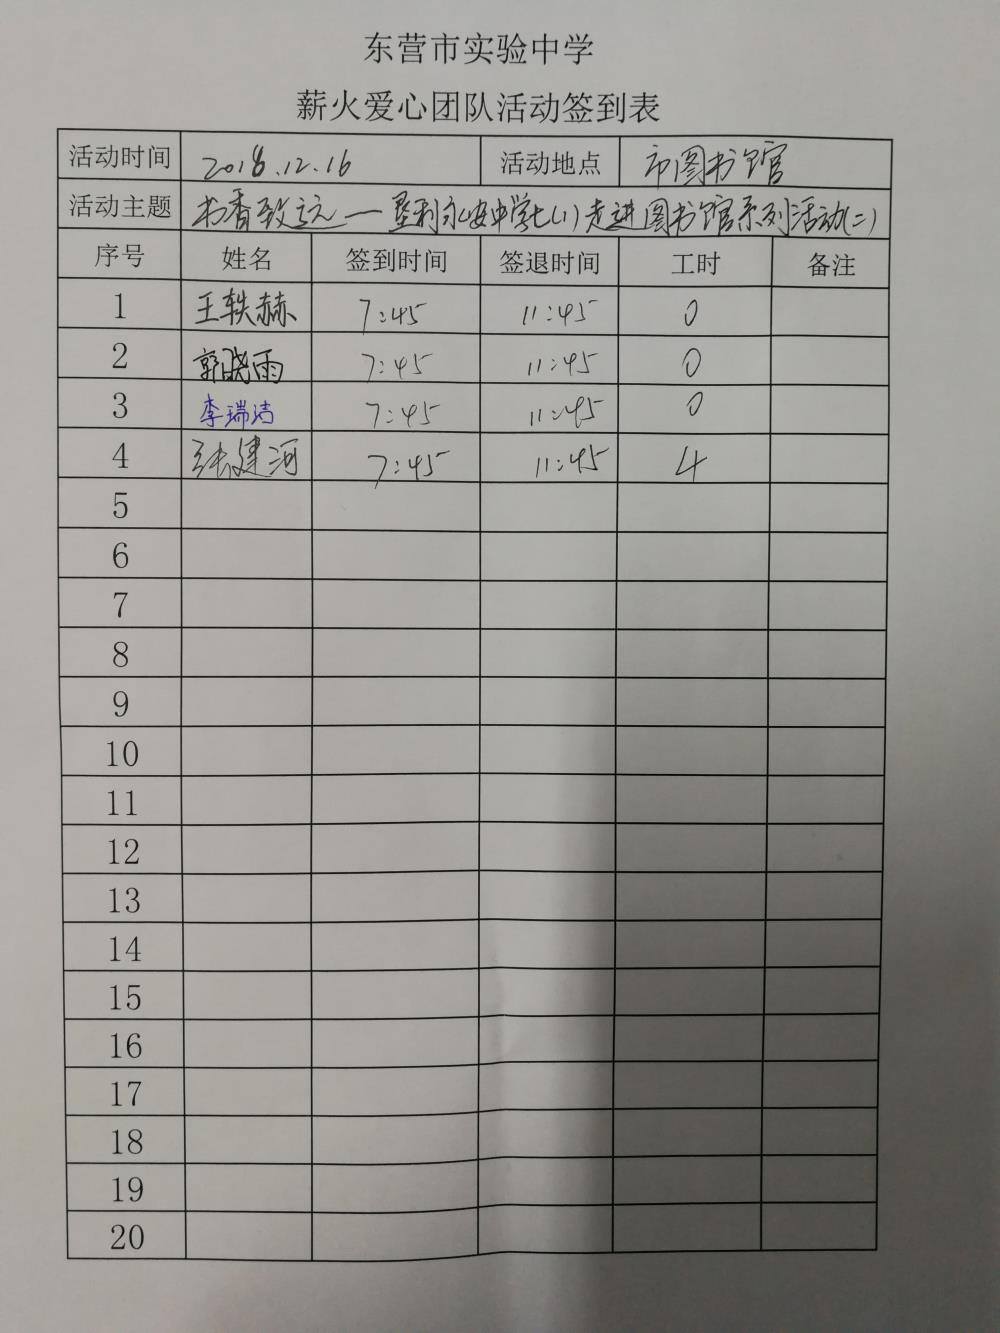 东营市实验中学
薪火爱心团队活动签到表
活动时间 2018.12.16 活动地点 市图书馆
活动主题 书香致远一垦利永安中学七(1)走进图书馆系列活动(二)
序号 姓名 签到时间 签退时间 工时 备注
1 王轶赫 7:45 11:45 0
2 郭晓雨 7:45 11:45 0
3 李瑞洁 7:45 11:45 0
4 张建河 7:45 11:45 4
5
6
7
8
9
10
11
12
13
14
15
16
17
18
19
20